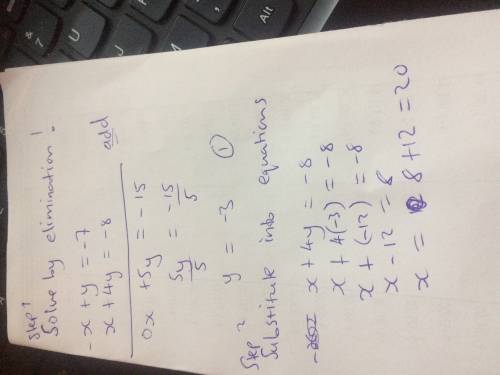 Step 1
Solve by elimination!
-x + y = -7
x + 4y = -8 add
0x + 5y = -15
5y/5 = -15/5
y = -3 ①
Step 2
Substitute into equations
x + 4y = -8
x + 4(-3) = -8
x + (-12) = -8
x - 12 = 8
x = 8 + 12 = 20
& 7 U J
Alt